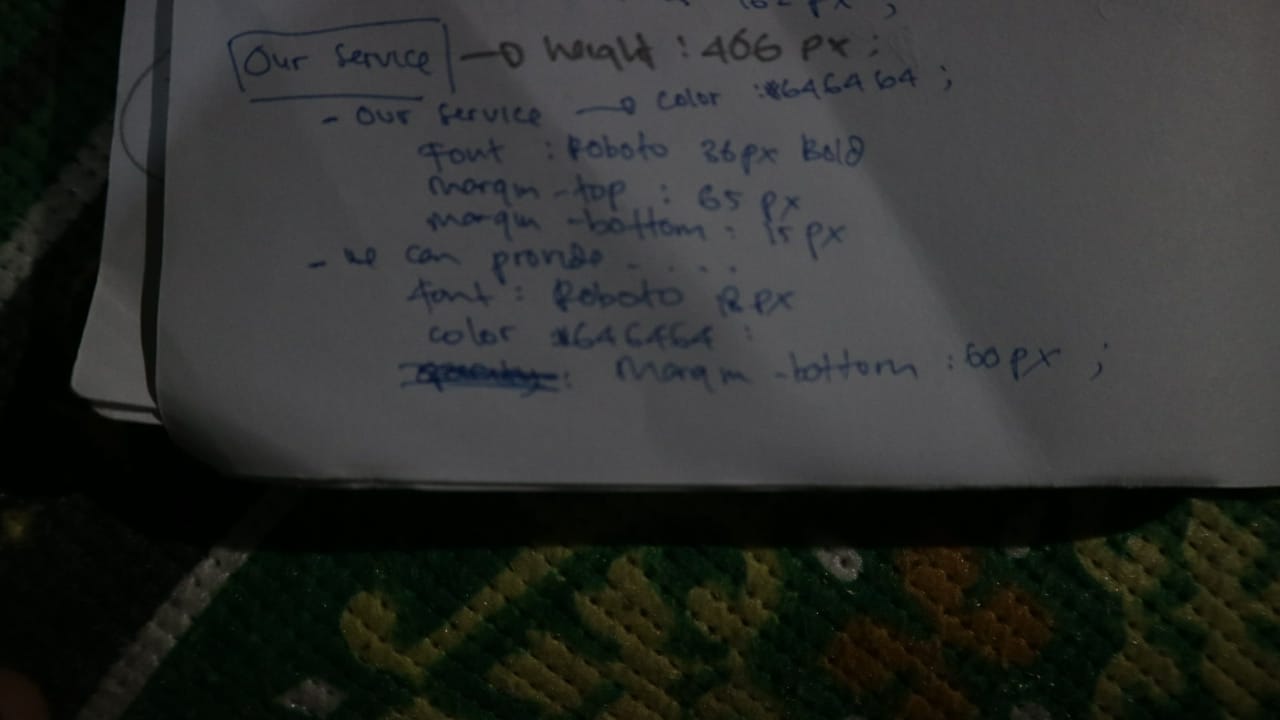 162 px ;
Our Service → height : 406 px ;
- Our Service → color : #646464 ;
font : Roboto 36px Bold
margin-top : 65 px
margin-bottom : 15 px
- we can provide . . . .
font : Roboto px
color #646464 :
: margin-bottom : 60 px ;